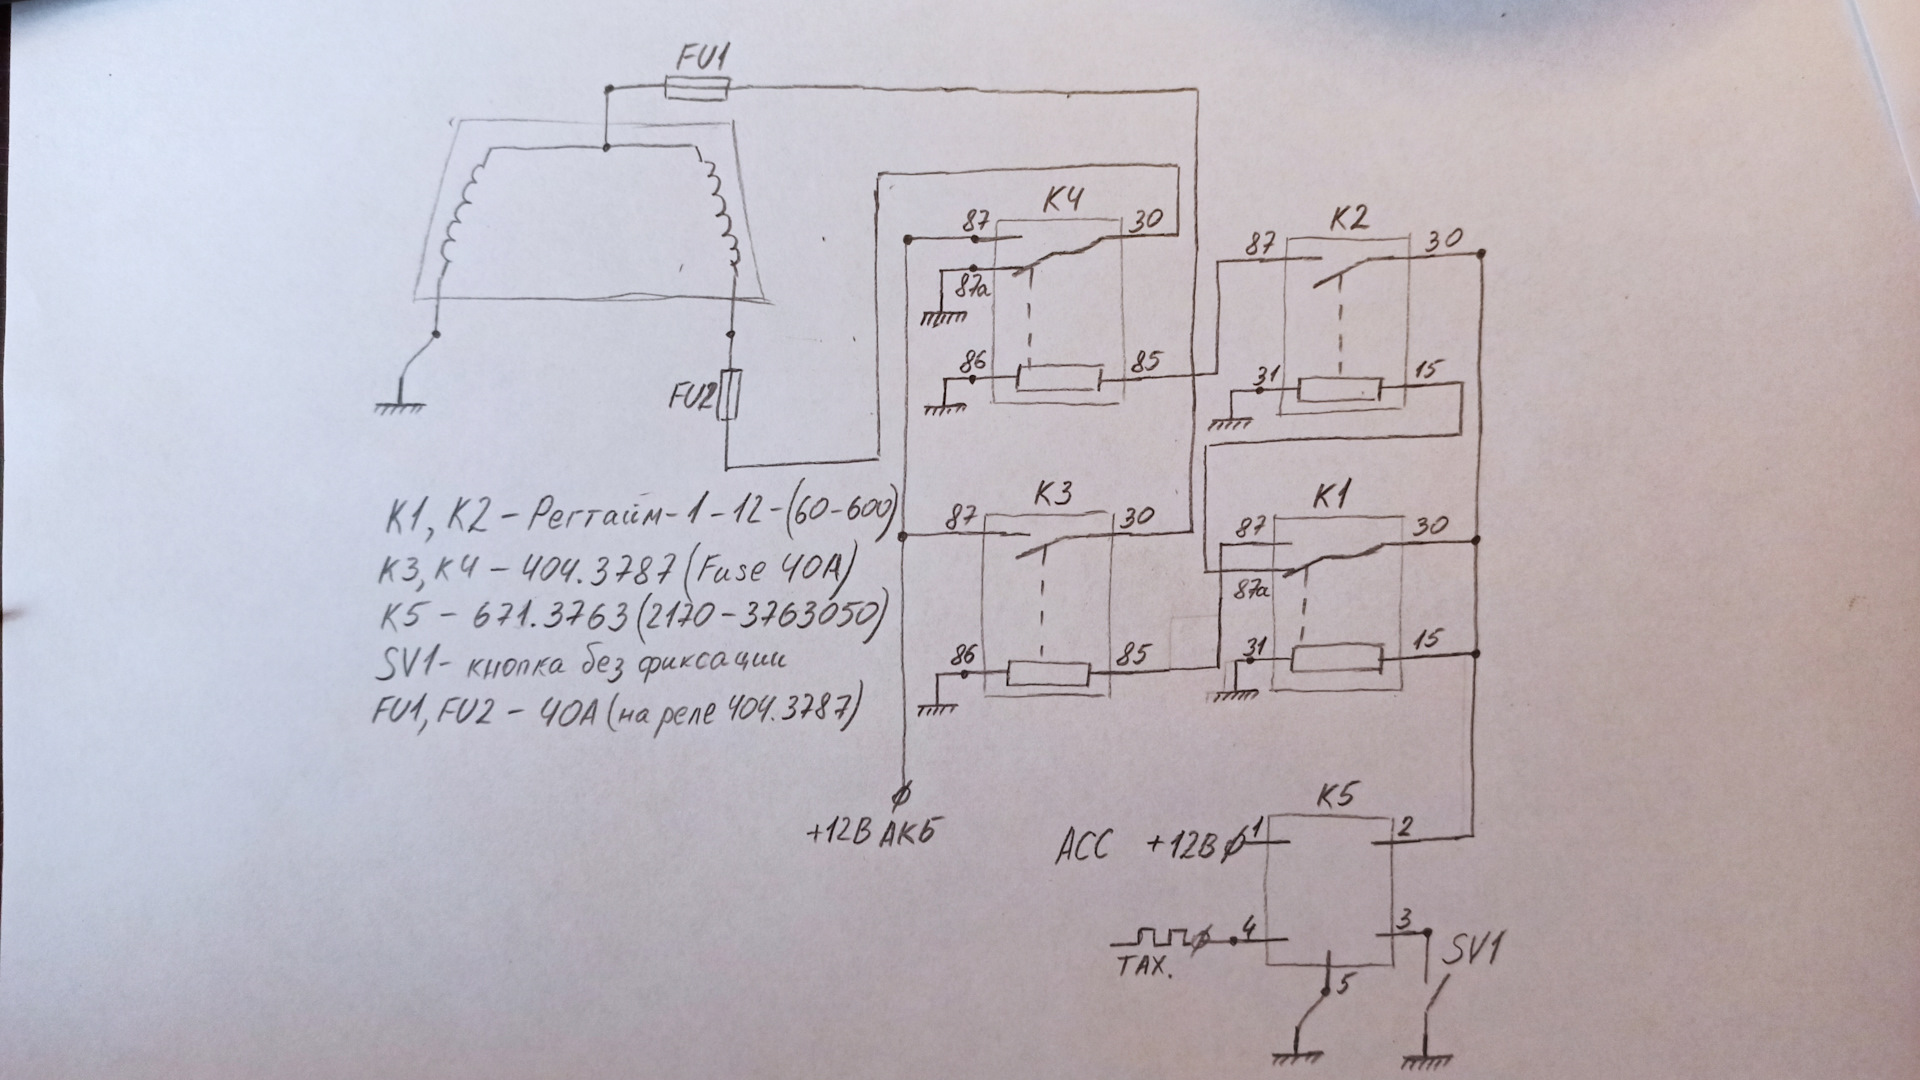 FU1
K4
87
30
87a
86
85
K2
87
30
31
15
FU2
K3
87
30
86
85
K1
87
30
87a
31
15
K1, K2 - Регтайм-1-12-(60-600)
K3, K4 - 404.3787 (Fuse 40A)
K5 - 671.3763 (2170-3763050)
SV1- кнопка без фиксации
FU1, FU2 - 40A (на реле 404.3787)
+12В АКБ
K5
ACC +12В
1
2
4
3
TAX.
5
SV1